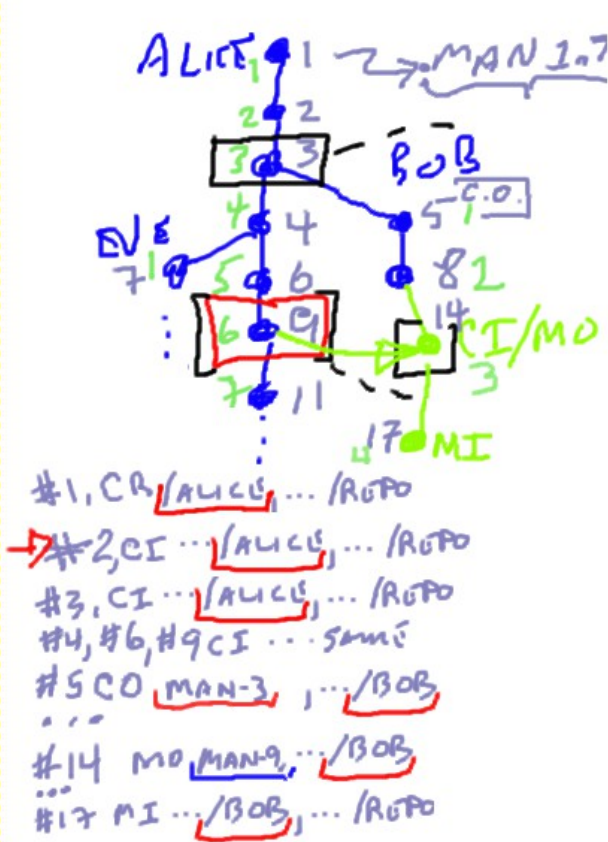 ALICE 1 1 MAN 1.7
2 2
3 3 BOB
4 4 5 1 C.O.
EVE
7 1 5 6 8 2
6 9 14 CI/MO
3
7 11
4 17 MI
#1, CR /ALICE, ... /REPO
#2, CI ... /ALICE, ... /REPO
#3, CI ... /ALICE, ... /REPO
#4, #6, #9 CI ... SAME
#5 CO MAN-3 , ... /BOB
...
#14 MO MAN-9, ... /BOB
...
#17 MI ... /BOB, ... /REPO